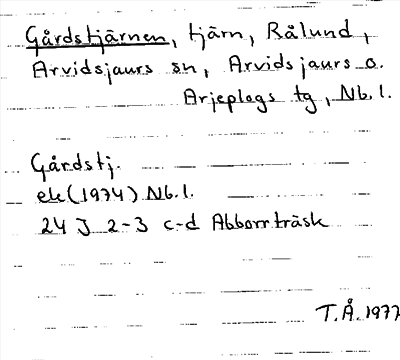 Gårdstjärnen, tjärn, Rålund,
Arvidsjaurs sn, Arvidsjaurs o.
Arjeplogs tg, Nb.l.
Gårdstj.
ek (1974) Nb.l.
24 J 2-3 c-d Abborrträsk
T.Å. 1977